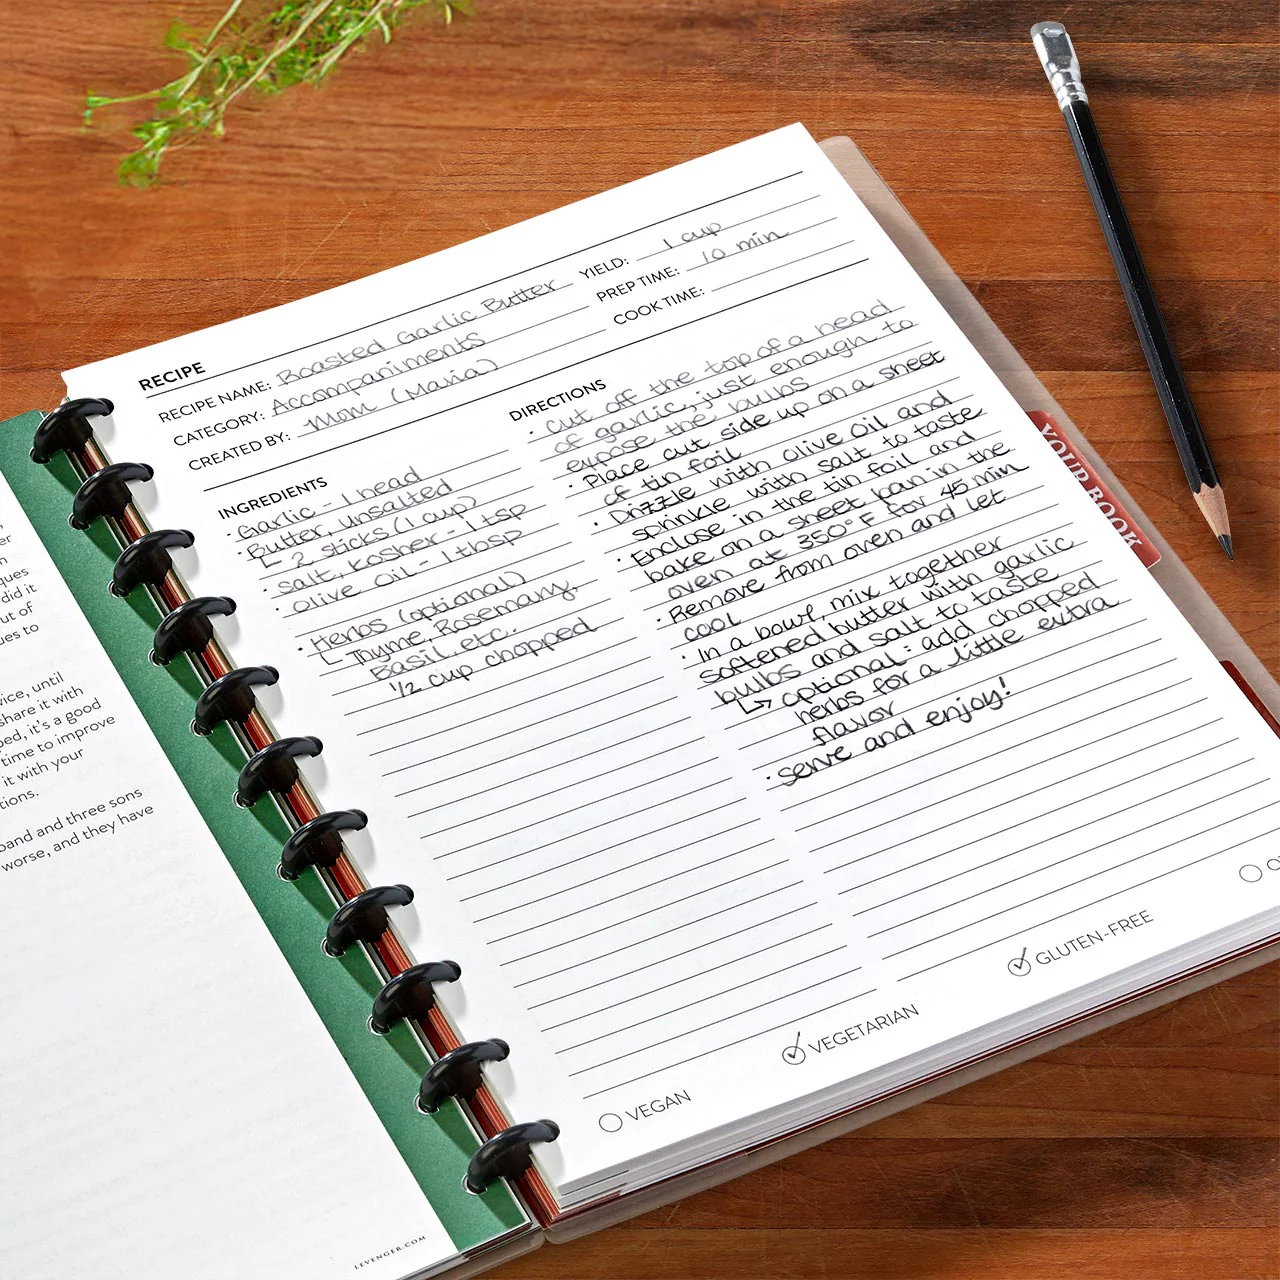 RECIPE
RECIPE NAME: Roasted Garlic Butter
CATEGORY: Accompaniments
CREATED BY: Mom (Maria)
YIELD: 1 cup
PREP TIME: 10 min
COOK TIME:
INGREDIENTS
· Garlic - 1 head
· Butter, unsalted
↳ 2 sticks (1 cup)
· Salt, Kosher - 1 tsp
· Olive Oil - 1 tbsp
· Herbs (optional)
↳ Thyme, Rosemary,
Basil, etc.
1/2 cup chopped
DIRECTIONS
· Cut off the top of a head
of garlic, just enough to
expose the bulbs
· Place cut side up on a sheet
of tin foil
· Drizzle with olive oil and
sprinkle with salt to taste
· Enclose in the tin foil and
bake on a sheet pan in the
oven at 350°F for 45 min
· Remove from oven and let
cool
· In a bowl, mix together
softened butter with garlic
bulbs and salt to taste
↳ optional: add chopped
herbs for a little extra
flavor
· serve and enjoy!
VEGAN
VEGETARIAN
GLUTEN-FREE
YOUR BOOK
ques
did it
ut of
ues to
vice, until
share it with
ped, it's a good
time to improve
it with your
tions.
band and three sons
worse, and they have
LEVENGER.COM